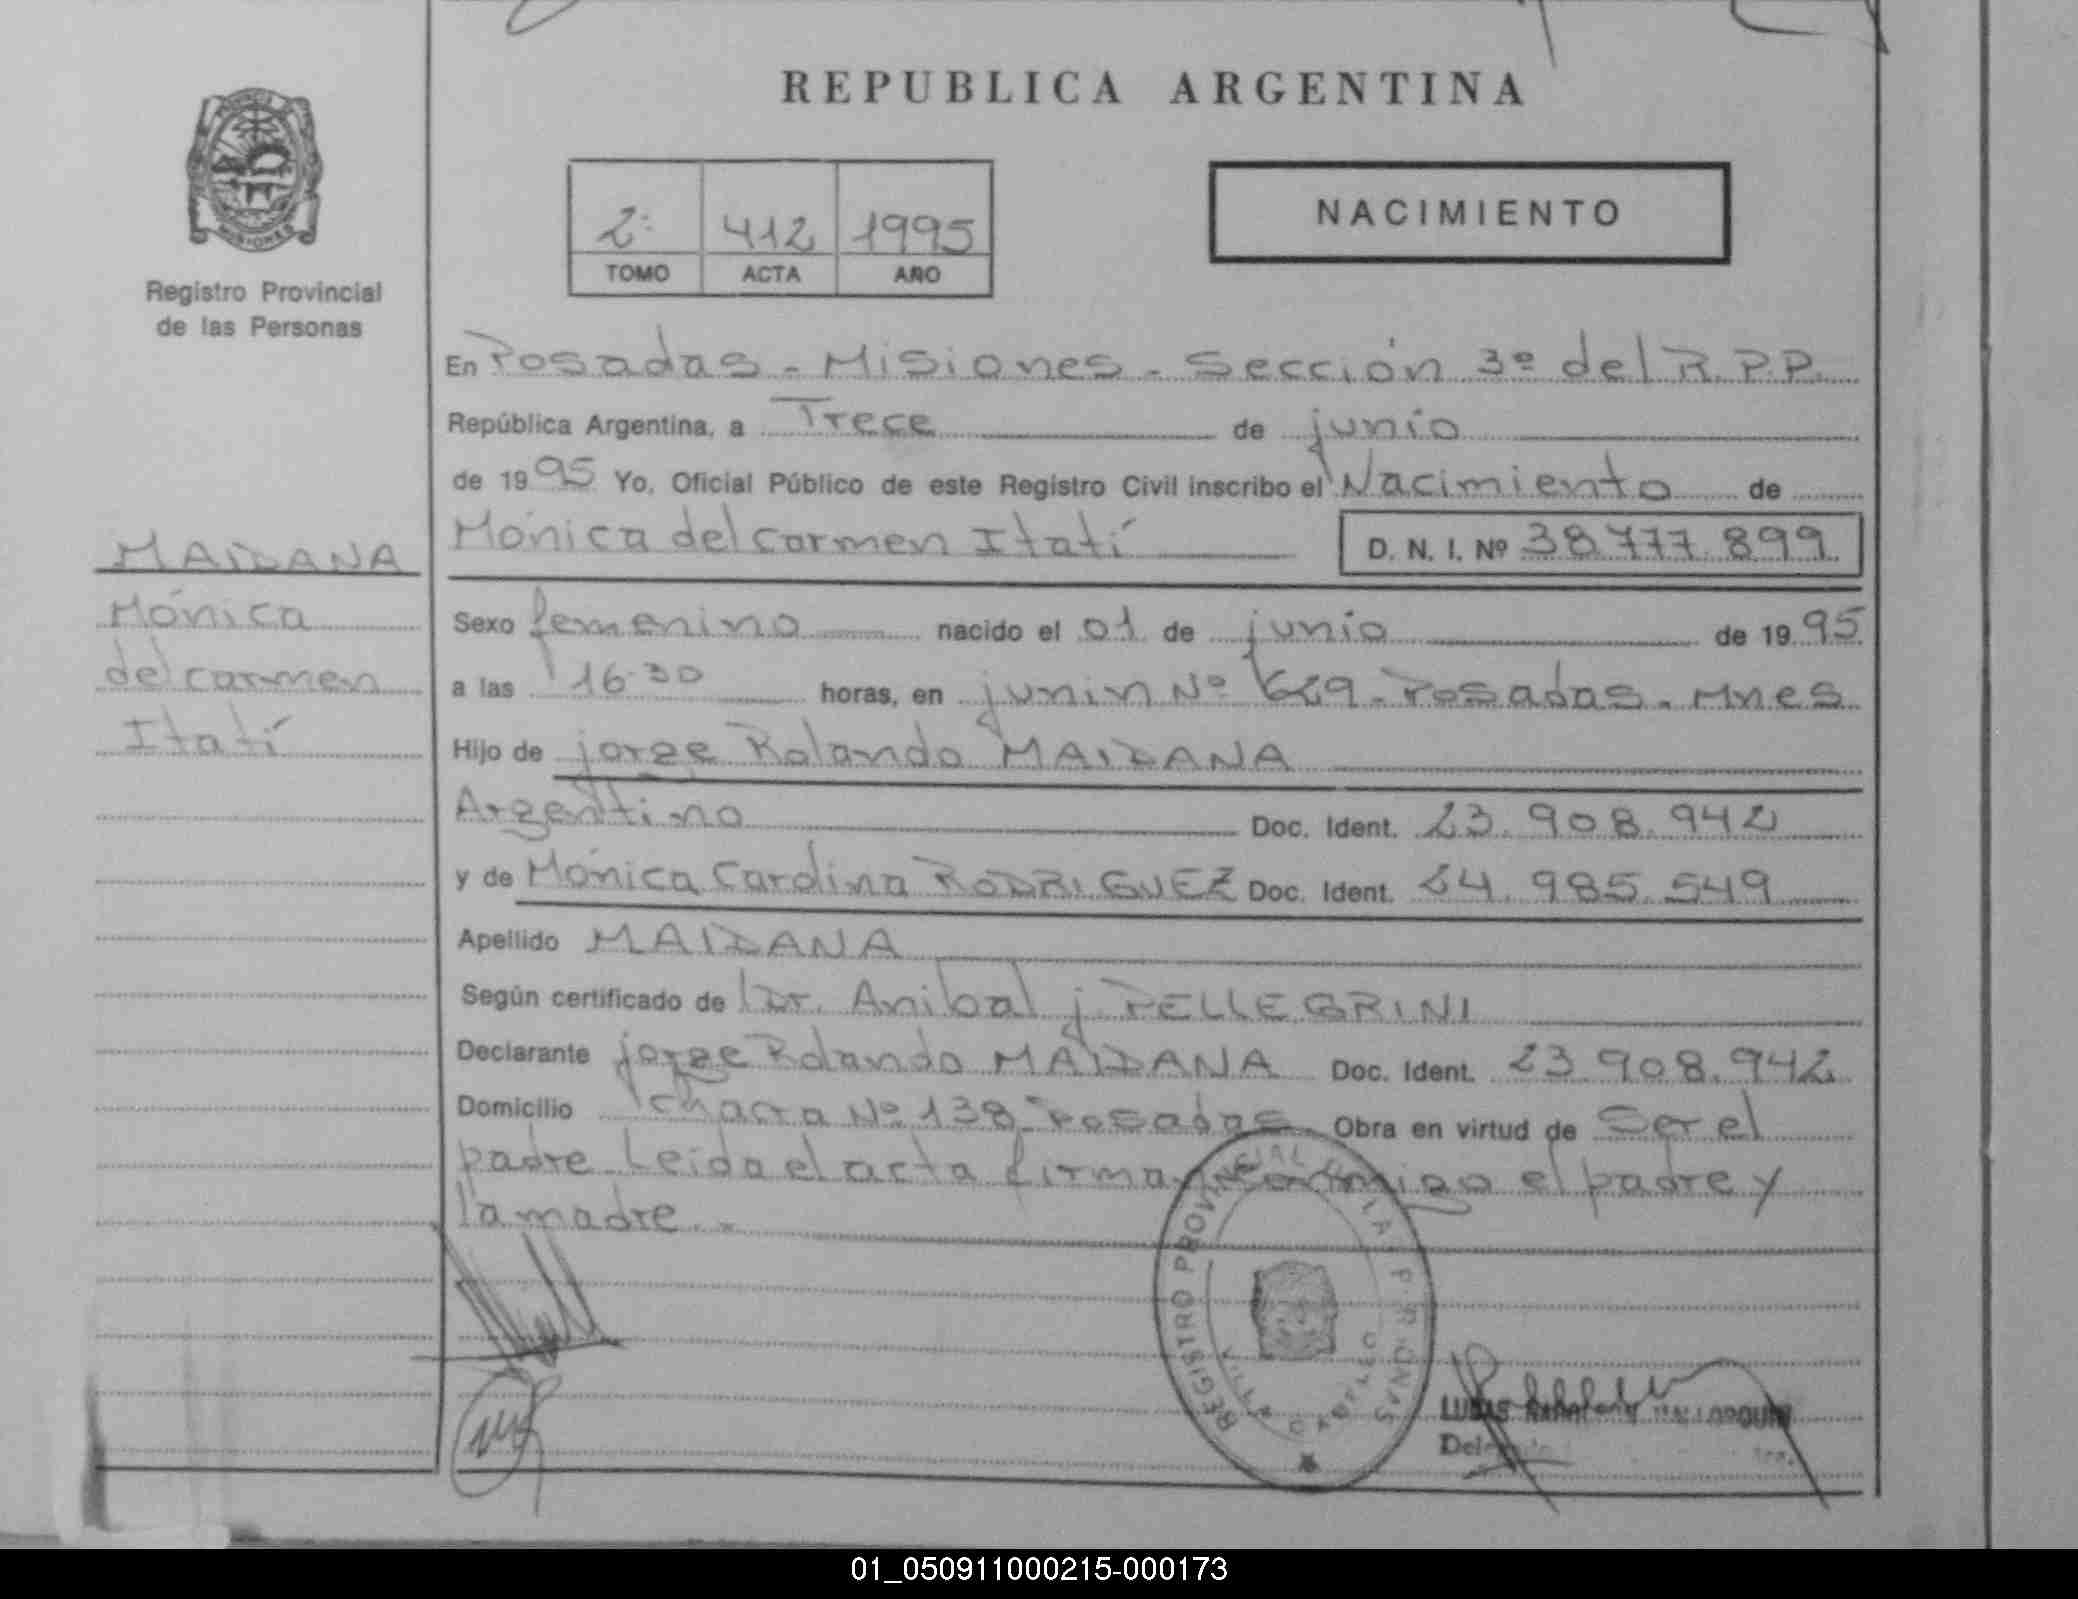 REPUBLICA ARGENTINA
MISIONES
Registro Provincial
de las Personas
2º 412 1995
TOMO ACTA AÑO
NACIMIENTO
En Posadas - Misiones - Sección 3º del R.P.P.
República Argentina, a Trece de junio
de 1995 Yo, Oficial Público de este Registro Civil inscribo el Nacimiento de
Mónica del Carmen Itatí D. N. I. Nº 38.777.899
MAIDANA
Mónica
del carmen
Itatí
Sexo femenino nacido el 01 de junio de 1995
a las 16.30 horas, en junin Nº 629 - Posadas - Mnes
Hijo de jorge Rolando MAIDANA
Argentino Doc. Ident. 23.908.942
y de Mónica Carolina RODRIGUEZ Doc. Ident. 24.985.549
Apellido MAIDANA
Según certificado de Dr. Anibal j. PELLEGRINI
Declarante jorge Rolando MAIDANA Doc. Ident. 23.908.942
Domicilio chacra Nº 138 - Posadas Obra en virtud de Ser el
padre Leida el acta firman conmigo el padre y
la madre.
REGISTRO PROVINCIAL DE LAS PERSONAS
VILLA CABELLO
01_050911000215-000173